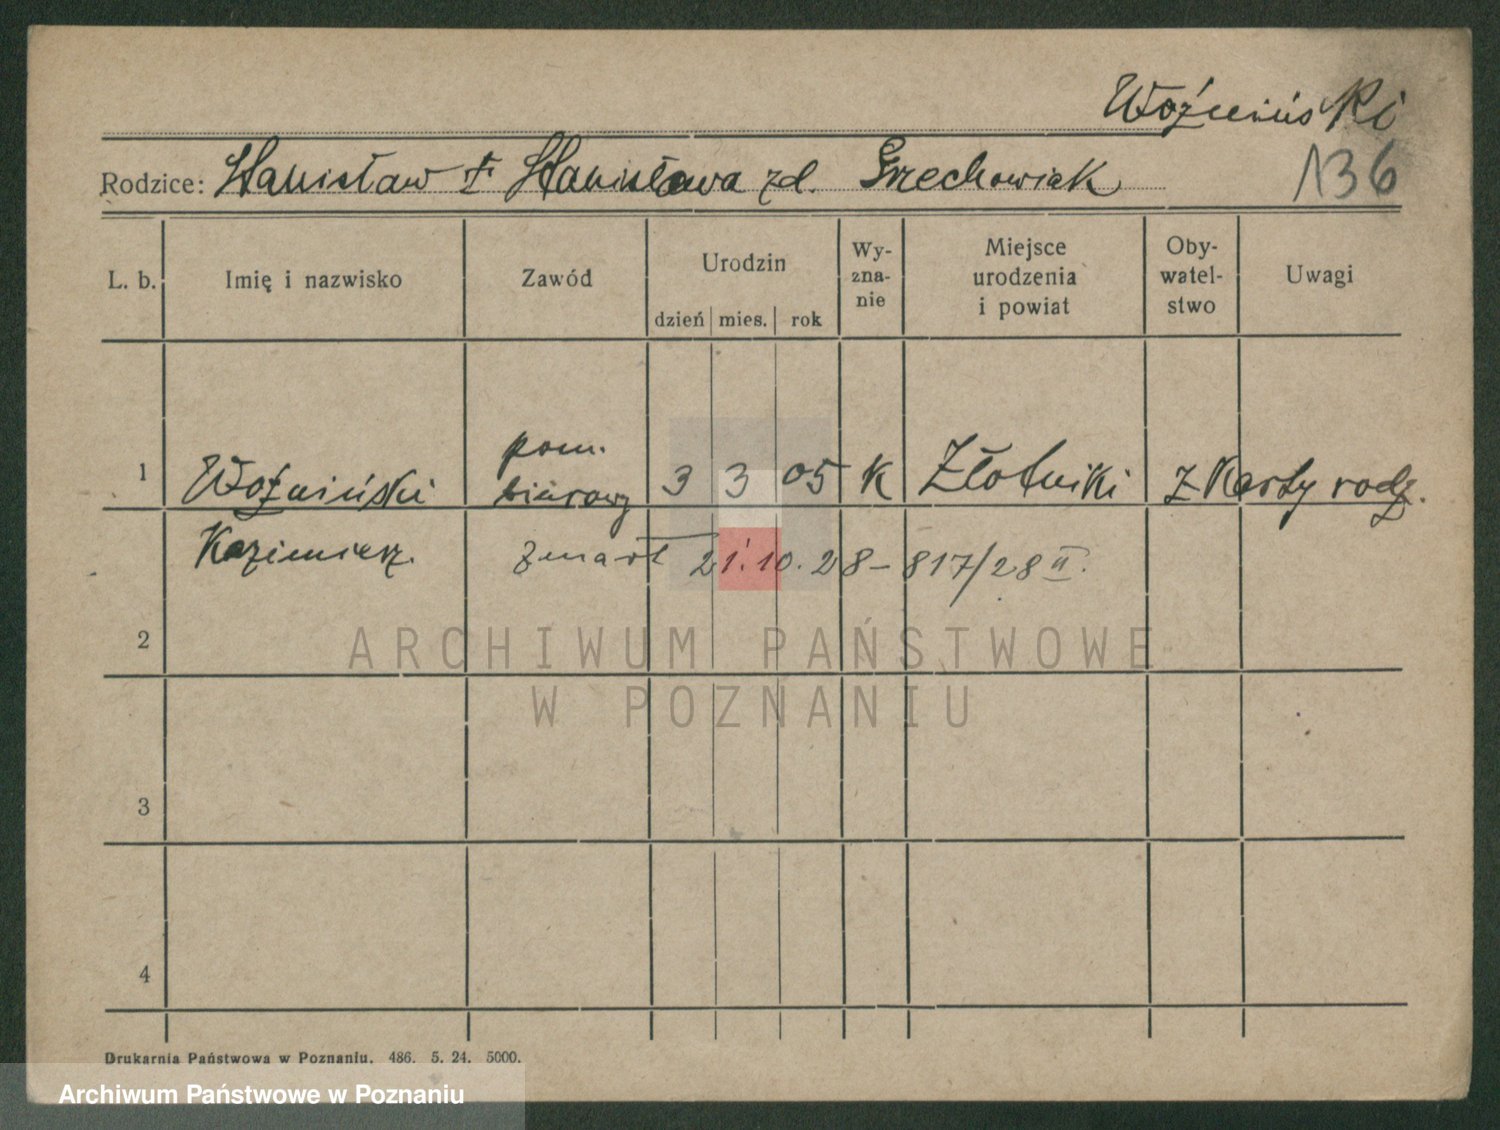 Woźniński
Rodzice: Stanisław † Stanisława zd. Grzechowiak
136
L. b. Imię i nazwisko Zawód Urodzin Wy-zna-nie Miejsce urodzenia i powiat Oby-watel-stwo Uwagi
dzień mies. rok
pom.
1 Woźniński biurowy 3 3 05 K Złotniki z Karty rodz.
Kazimierz. zmarł 21.10.28 – 817/28 II.
2
ARCHIWUM PAŃSTWOWE
W POZNANIU
3
4
Drukarnia Państwowa w Poznaniu. 486. 5. 24. 5000.
Archiwum Państwowe w Poznaniu